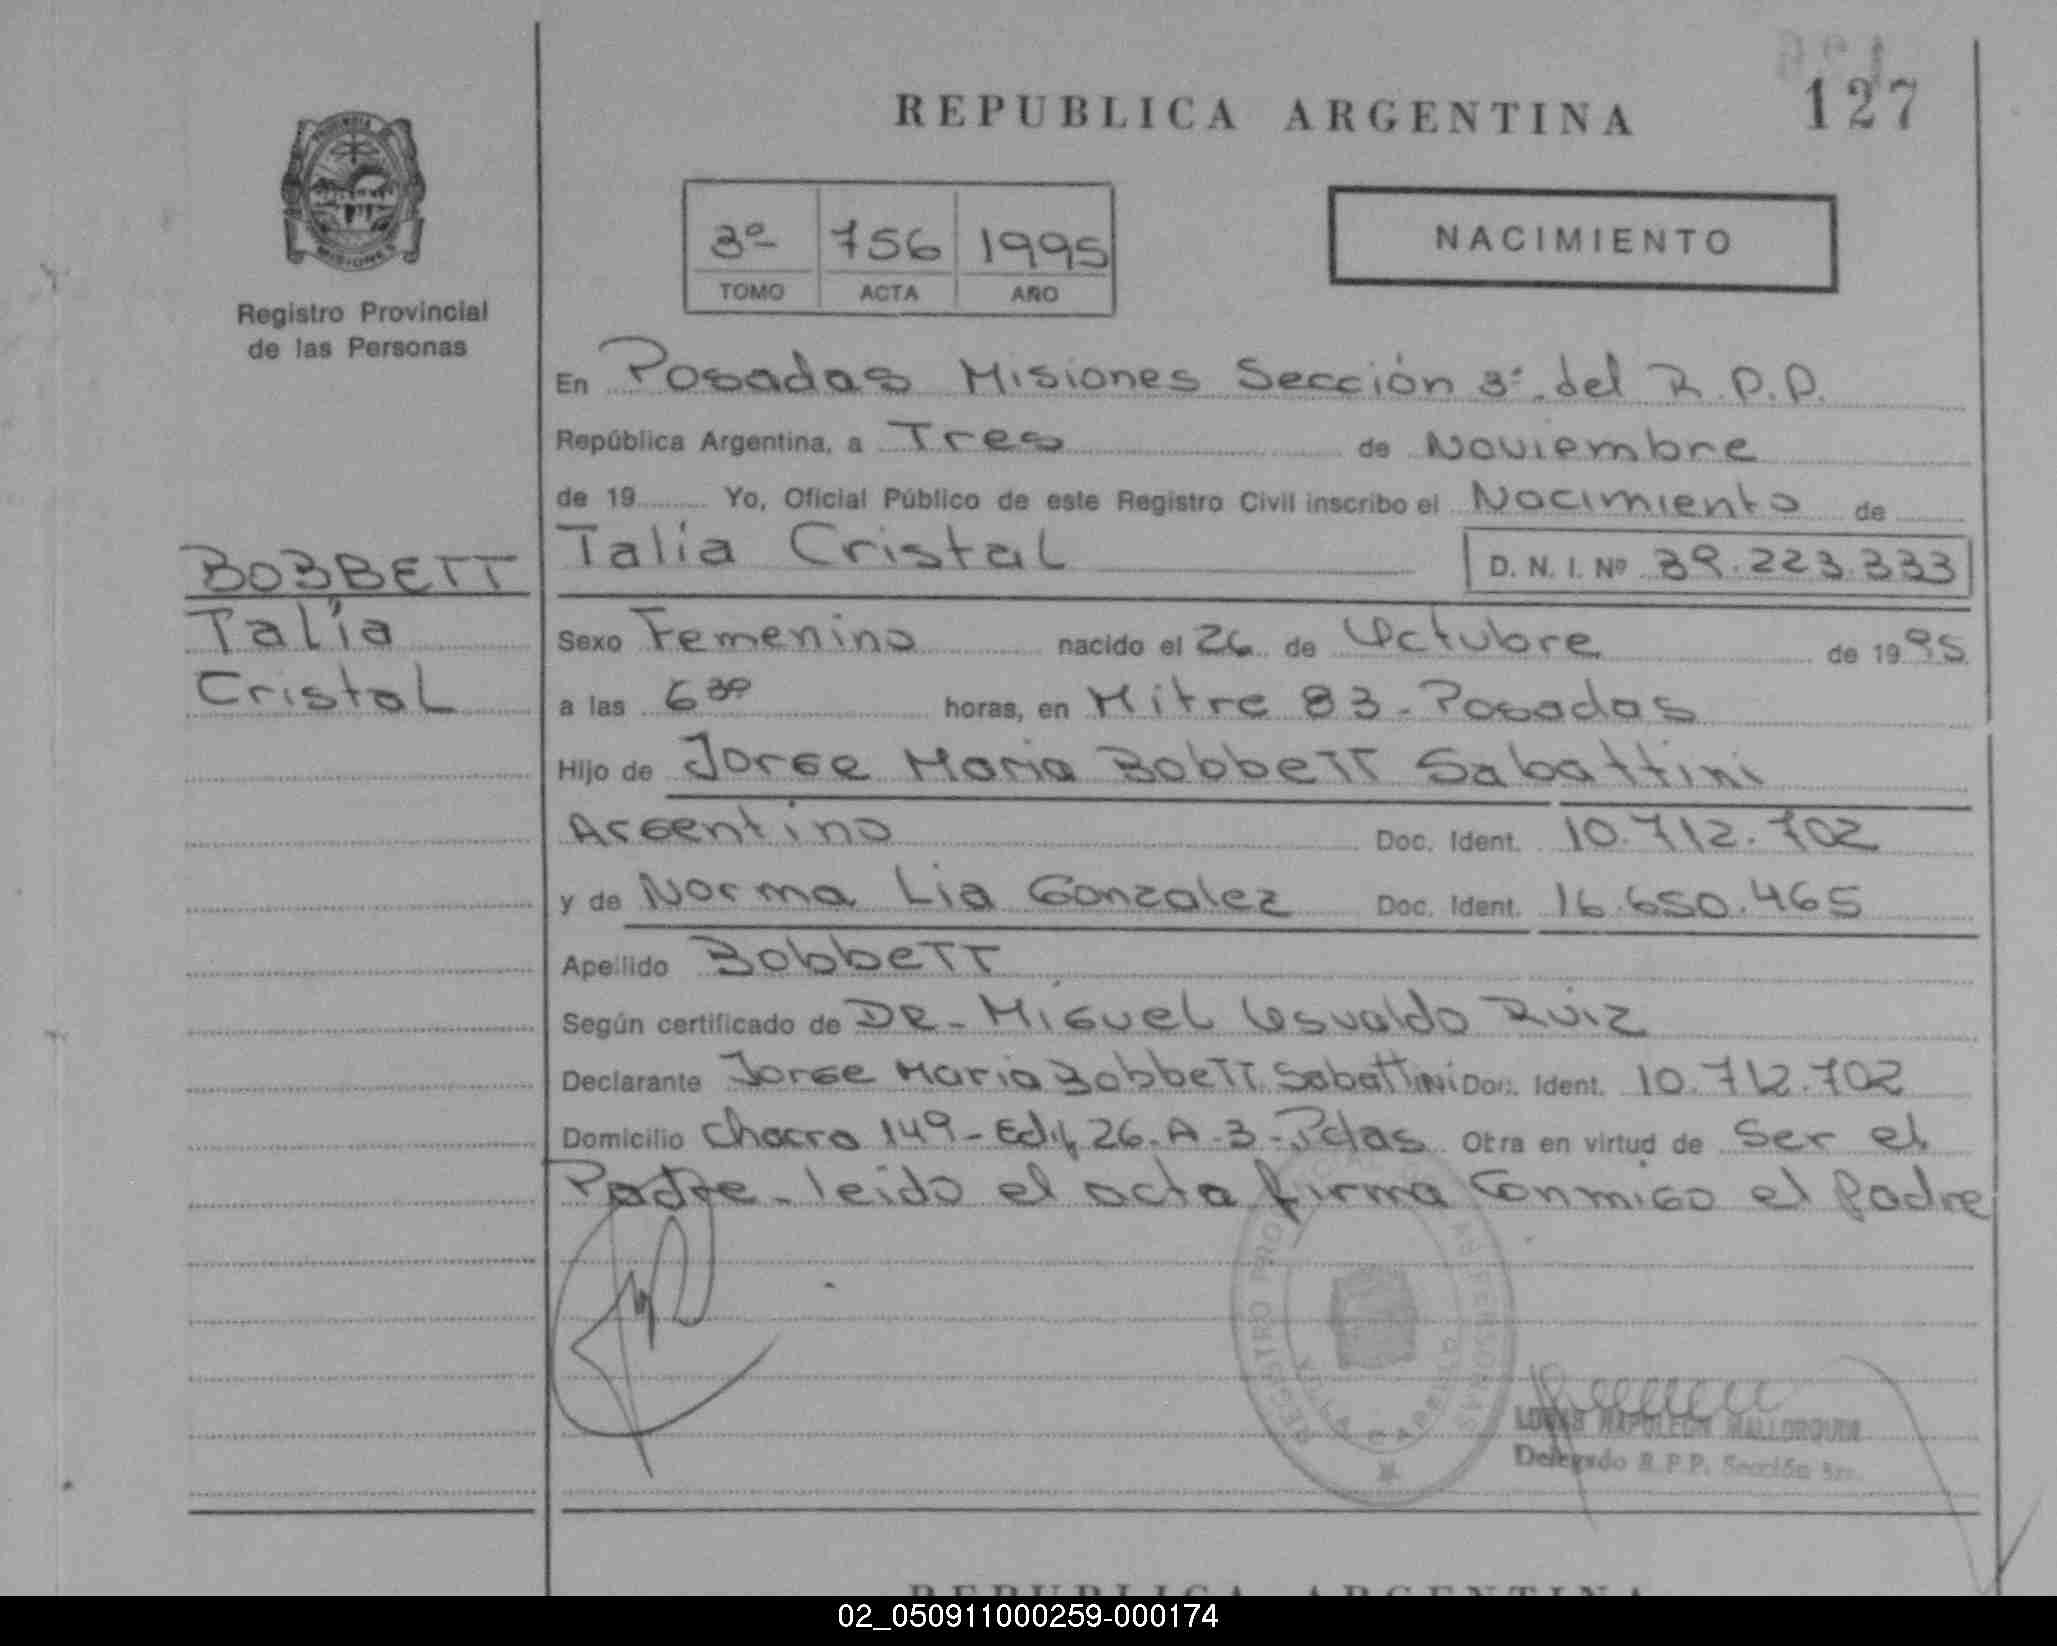 127
REPUBLICA ARGENTINA
NACIMIENTO
3º 756 1995
TOMO ACTA AÑO
PROVINCIA DE
MISIONES
Registro Provincial
de las Personas
BOBBETT
Talía
Cristal
En Posadas Misiones Sección 3º. del R.P.P.
República Argentina, a Tres de Noviembre
de 19 Yo, Oficial Público de este Registro Civil inscribo el Nacimiento de
Talía Cristal D. N. I. Nº 39.223.333
Sexo Femenino nacido el 26 de Octubre de 1995
a las 6 30 horas, en Mitre 83 - Posadas
Hijo de Jorge Maria Bobbett Sabattini
Argentino Doc. Ident. 10.712.702
y de Norma Lia Gonzalez Doc. Ident. 16.650.465
Apellido Bobbett
Según certificado de DR - Miguel Osvaldo Ruiz
Declarante Jorge Maria Bobbett Sabattini Doc. Ident. 10.712.702
Domicilio Chacra 149 - Edif 26 - A - 3 - Pdas Otra en virtud de Ser el
Padre - leido el acta firma Conmigo el Padre
REGISTRO PROVINCIAL DE LAS PERSONAS
VILLA CABELLO
LUCAS NAPOLEON MALLORQUIN
Delegado R.P.P. Sección 3ra.
REPUBLICA ARGENTINA
02_050911000259-000174